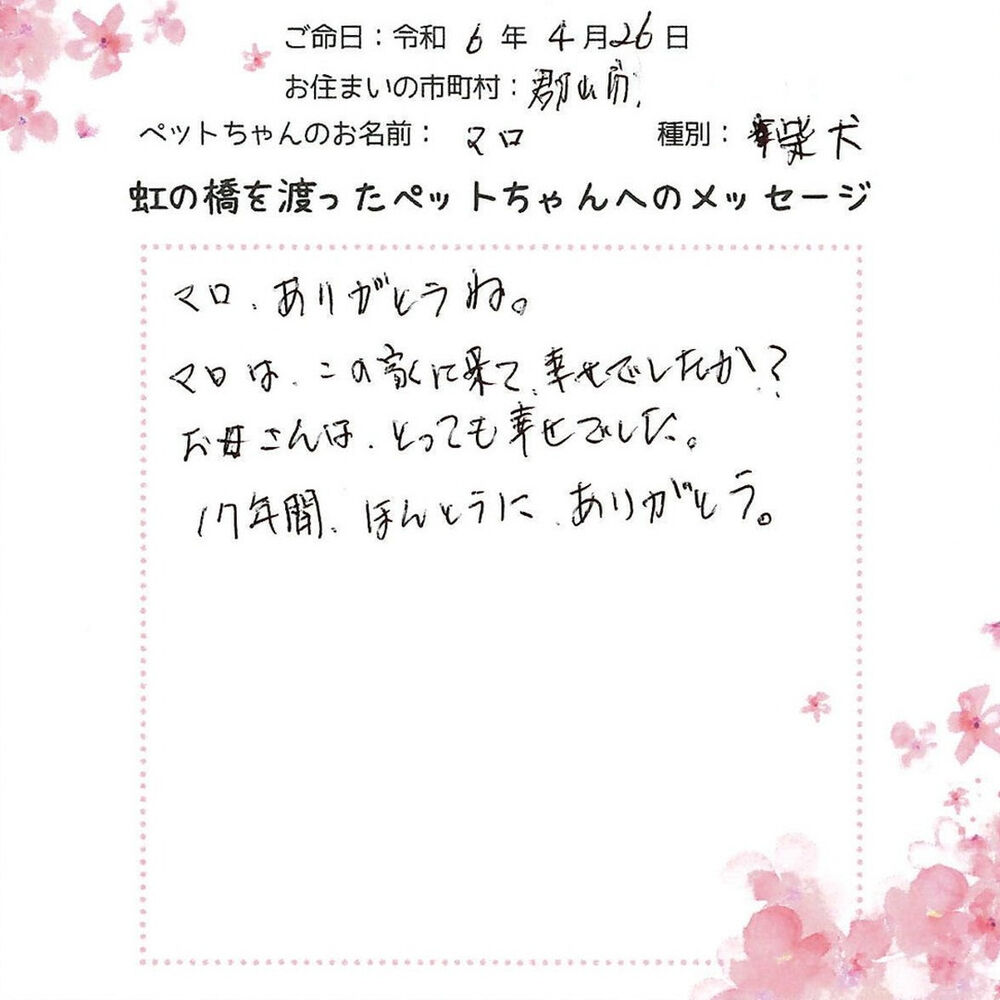 ご命日：令和 6 年 4 月 26 日
お住まいの市町村：郡山市
ペットちゃんのお名前： マロ 種別： 柴犬
虹の橋を渡ったペットちゃんへのメッセージ
マロ、ありがとうね。
マロは、この家に来て、幸せでしたか？
お母さんは、とっても幸せでした。
17年間、ほんとうに、ありがとう。